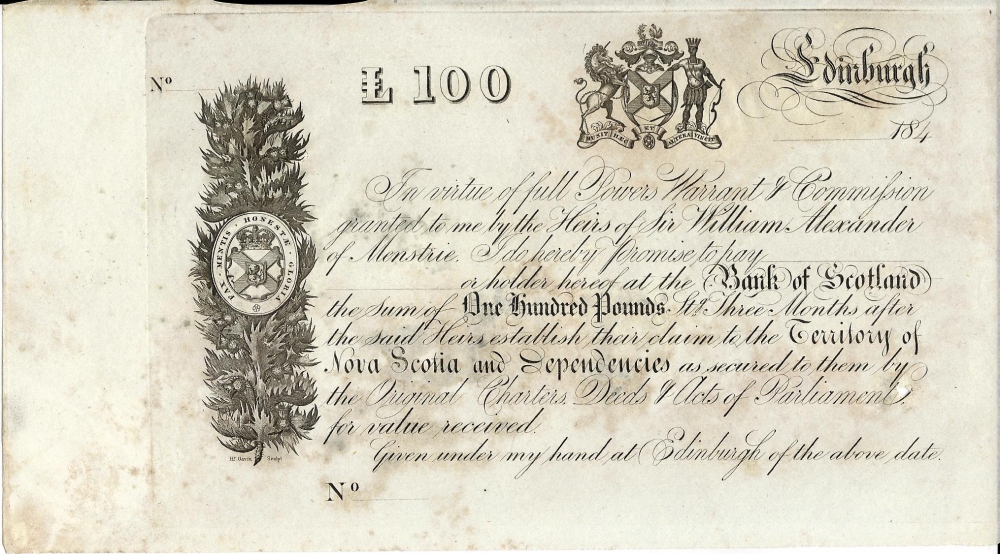 Nº
£ 100
MUNIT HÆC ET ALTERA VINCIT
Edinburgh
184
In virtue of full Powers Warrant & Commiſsion
granted to me by the Heirs of Sir William Alexander
of Menstrie. I do hereby promise to pay
or holder hereof at the Bank of Scotland
the Sum of One Hundred Pounds Stg Three Months after
the said Heirs establish their claim to the Territory of
Nova Scotia and Dependencies as secured to them by
the Original Charters, Deeds & Acts of Parliament,
for value received.
Given under my hand at Edinburgh of the above date.
Nº
PAX · MENTIS · HONESTÆ · GLORIA
Hy. Gavin Sculpt